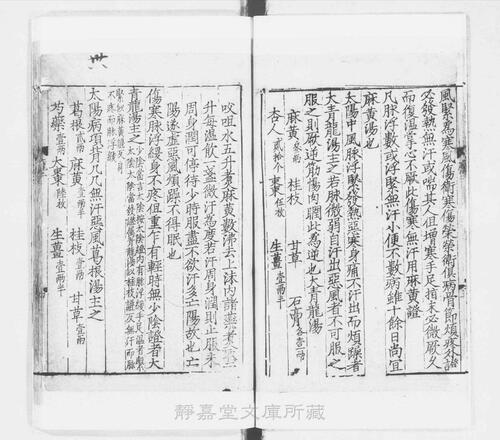 風緊為寒風傷衛寒傷榮榮衛俱病骨節煩疼外證
必發熱無汗或喘其人但憎寒手足指末必微厥久
而復溫掌心不厥此傷寒無汗用麻黃證
凡脉浮數或浮緊無汗小便不數病雖十餘日尚宜
麻黃湯也
太陽中風脉浮緊發熱惡寒身痛不汗出而煩躁者
大青龍湯主之若脉微弱自汗出惡風者不可服之
服之則厥逆筋惕肉瞤此為逆也大青龍湯
麻黃 桂枝 甘草 石膏
杏人 棗 生薑壹兩半
㕮咀水五升煮麻黃數沸去上沫內諸藥煮至二
升每溫飲一盞微汗為度若汗周身潤則止服未
周身潤可停待少時服盡不欲汗多亡陽故也亡
陽遂虛惡風煩躁不得眠也
傷寒脉浮緩身不疼但重乍有輕時無少陰證者大
青龍湯主之
太陽病項背几几無汗惡風葛根湯主之
葛根貳兩 麻黃壹兩半 桂枝壹兩 甘草壹兩
芍藥壹兩 大棗陸枚 生薑壹兩半
靜嘉堂文庫所藏